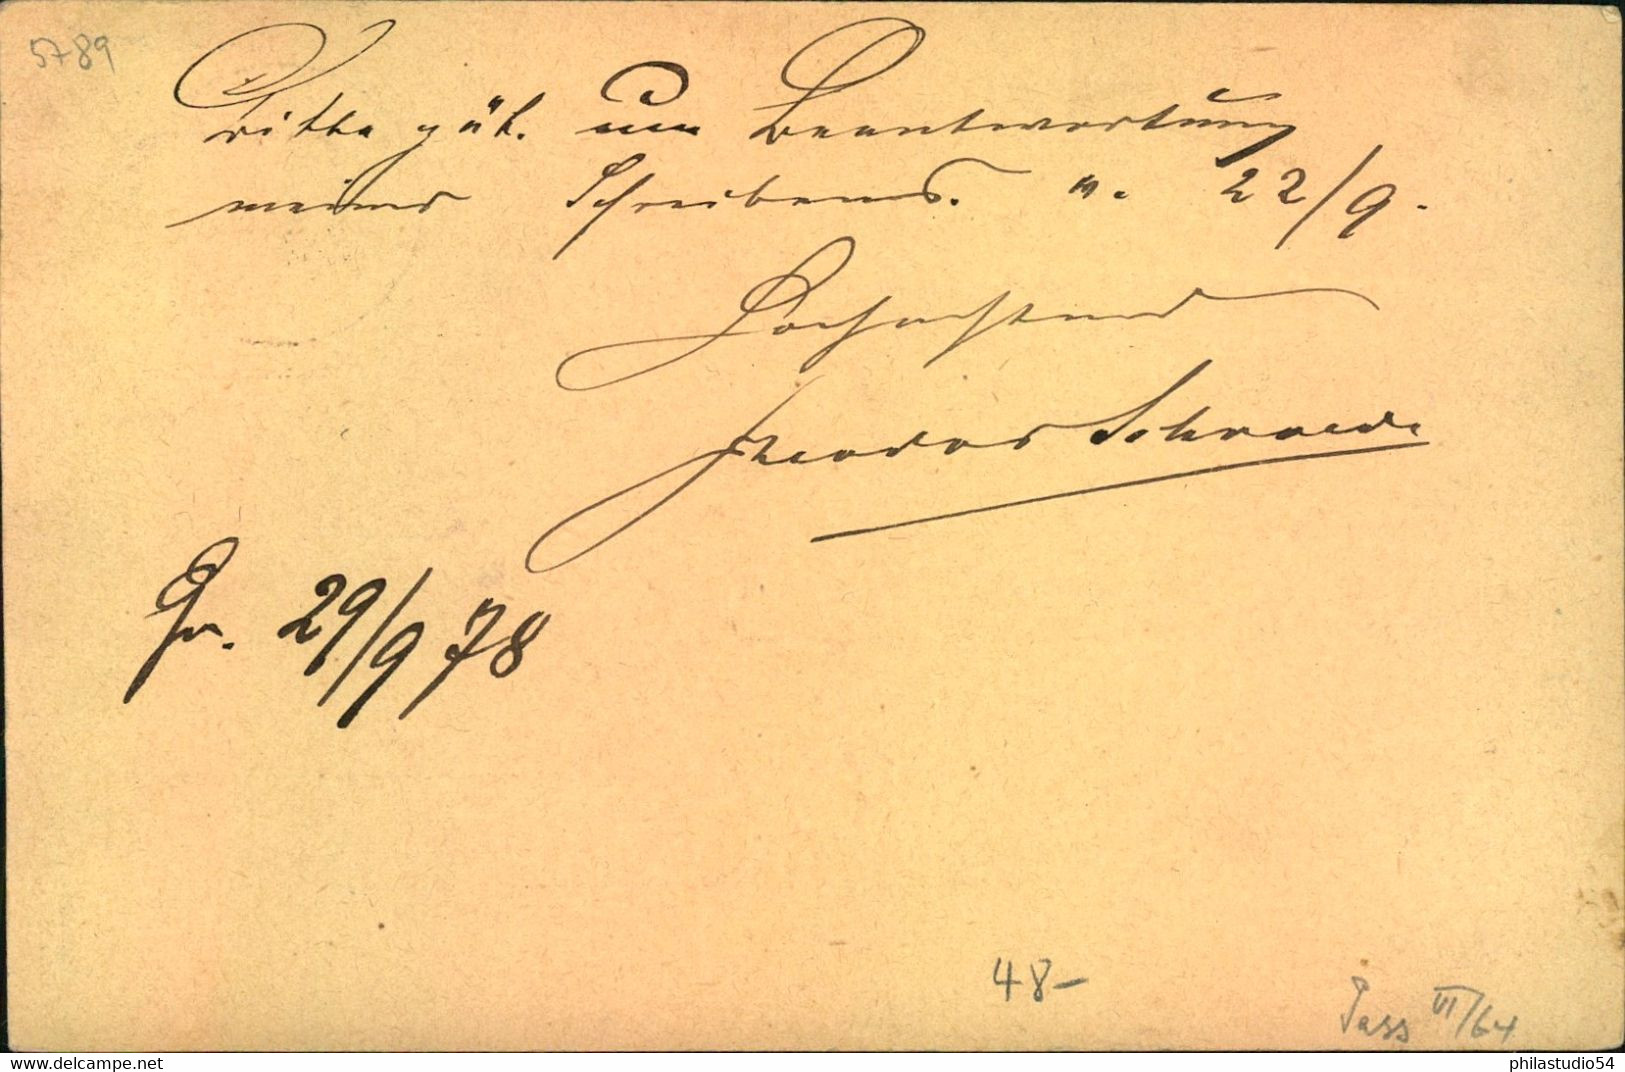 5789
Bitte güt. um Beantwortung
meines Schreibens. v. 22/9.
Hochachtend
Theodor Schroeder
Gr. 29/9 78
48-
Pass VI/64
www.delcampe.net
philastudio54